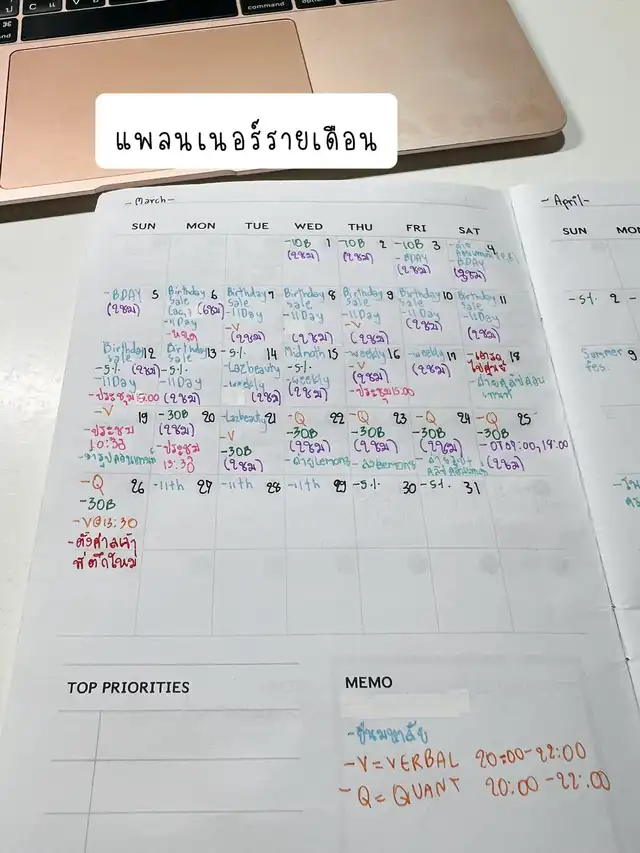 command
option
แพลนเนอร์รายเดือน
-March-
-April-
SUN MON TUE WED THU FRI SAT
SUN
-10B 1
(2ชม)
-10B 2
(2ชม)
-10B 3
-BDAY
(2ชม)
4
BDAY
(2ชม)
-BDAY 5
(2ชม)
Birthday 6
Sale
-11Day
Birthday 7
Sale
-11Day
-V
(2ชม)
Birthday 8
Sale
-11Day
(2ชม)
Birthday 9
Sale
-11Day
-V
(2ชม)
Birthday 10
Sale
-11Day
(2ชม)
Birthday 11
Sale
-11Day
(2ชม)
Birthday 12
Sale
-5%. (2ชม)
-11Day
-ประชุม 15:00
Birthday 13
Sale
-5%.
-11Day
(2ชม)
-5%. 14
-Lazbeauty
-weekly
(2ชม)
Midmonth 15
-5%.
-weekly
(2ชม)
-weekly 16
-V
(2ชม)
-ประชุม 15:00
-weekly 17
(2ชม)
18
-V 19
-ประชุม
10:30
-30B 20
(2ชม)
-ประชุม
13:30
-Lazbeauty 21
-V
-30B
(2ชม)
-Q 22
-30B
(2ชม)
-ถ่ายLemons
-Q 23
-30B
(2ชม)
-Q 24
-30B
(2ชม)
-Q 25
-30B
-OT 09:00, 19:00
(2ชม)
-Q 26
-30B
-V@13:30
-ตั้งศาลเจ้า
ที่ตึกใหม่
-11th 27
-11th 28
-11th 29
-5%. 30
-5%. 31
-5%. 2
Summer 9
fes.
TOP PRIORITIES
MEMO
-V=VERBAL 20:00-22:00
-Q=QUANT 20:00-22:00